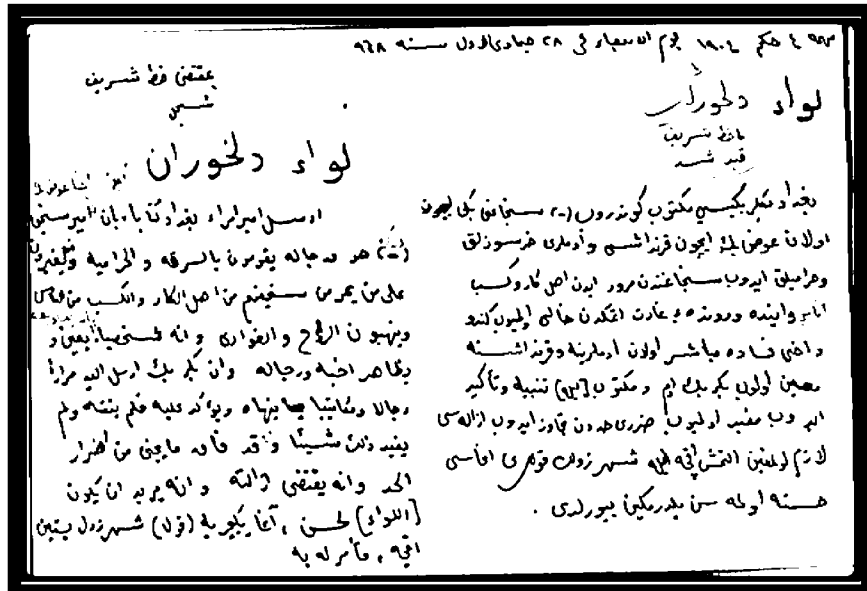 ٤ حكم ١٩٠٤ يوم الاربعاء في ٢٨ جمادى الاول سنه ٩٦٨
لواء دلخوران
با خط شريف
قيد شد
بغداد بكلربكيسي مكتوب كوندروب سنجاغي بكي
اولان عوض بك ايچون قرنداشى وأدملرى خرسوزلق
وحراميلق ايدوب سنجاغندن مرور ايدن اهل كار وكسب
آينده ورونده يه غارت اتمكدن خالى اولميوب كندو
داخى فساده مباشر اولان ادملرينه وقرنداشنه
معين اولوب بكلربك ايم مكتوب تنبيه وتأكيد
ايدوب مفيد اولميوب ضررى حددن تجاوز ايدوب ازاله سى
لازم اولمغين التمش اقچه ايله شهرزول قوللرى اغاسى
حسنه اوله سن بلدرمكين بيورلدى .
بمقتضى خط شريف
لواء دلخوران
ارسل امير امراء بغداد كتابا بان امير سنجق
هو ورجاله يقومون بالسرقه والحراميه ويغيرون
على من يمر من سنجقهم من اهل الكار والكسب من الناس
وينهبون الرائح
يظاهر اخيه ورجاله وان بكلر بك ارسل اليه مرارا
رجالا وكتابا ينهاه ويؤكد عليه فلم ينته ولم
يفيد ذلك شيئا وقد فاق ما يجنى من اضرار
الحد وانه يقتضى ازالته وانه يريد ان يكون
[اللواء] لحسن آغا شهرزول بستين
اقچه ، فأمر له به